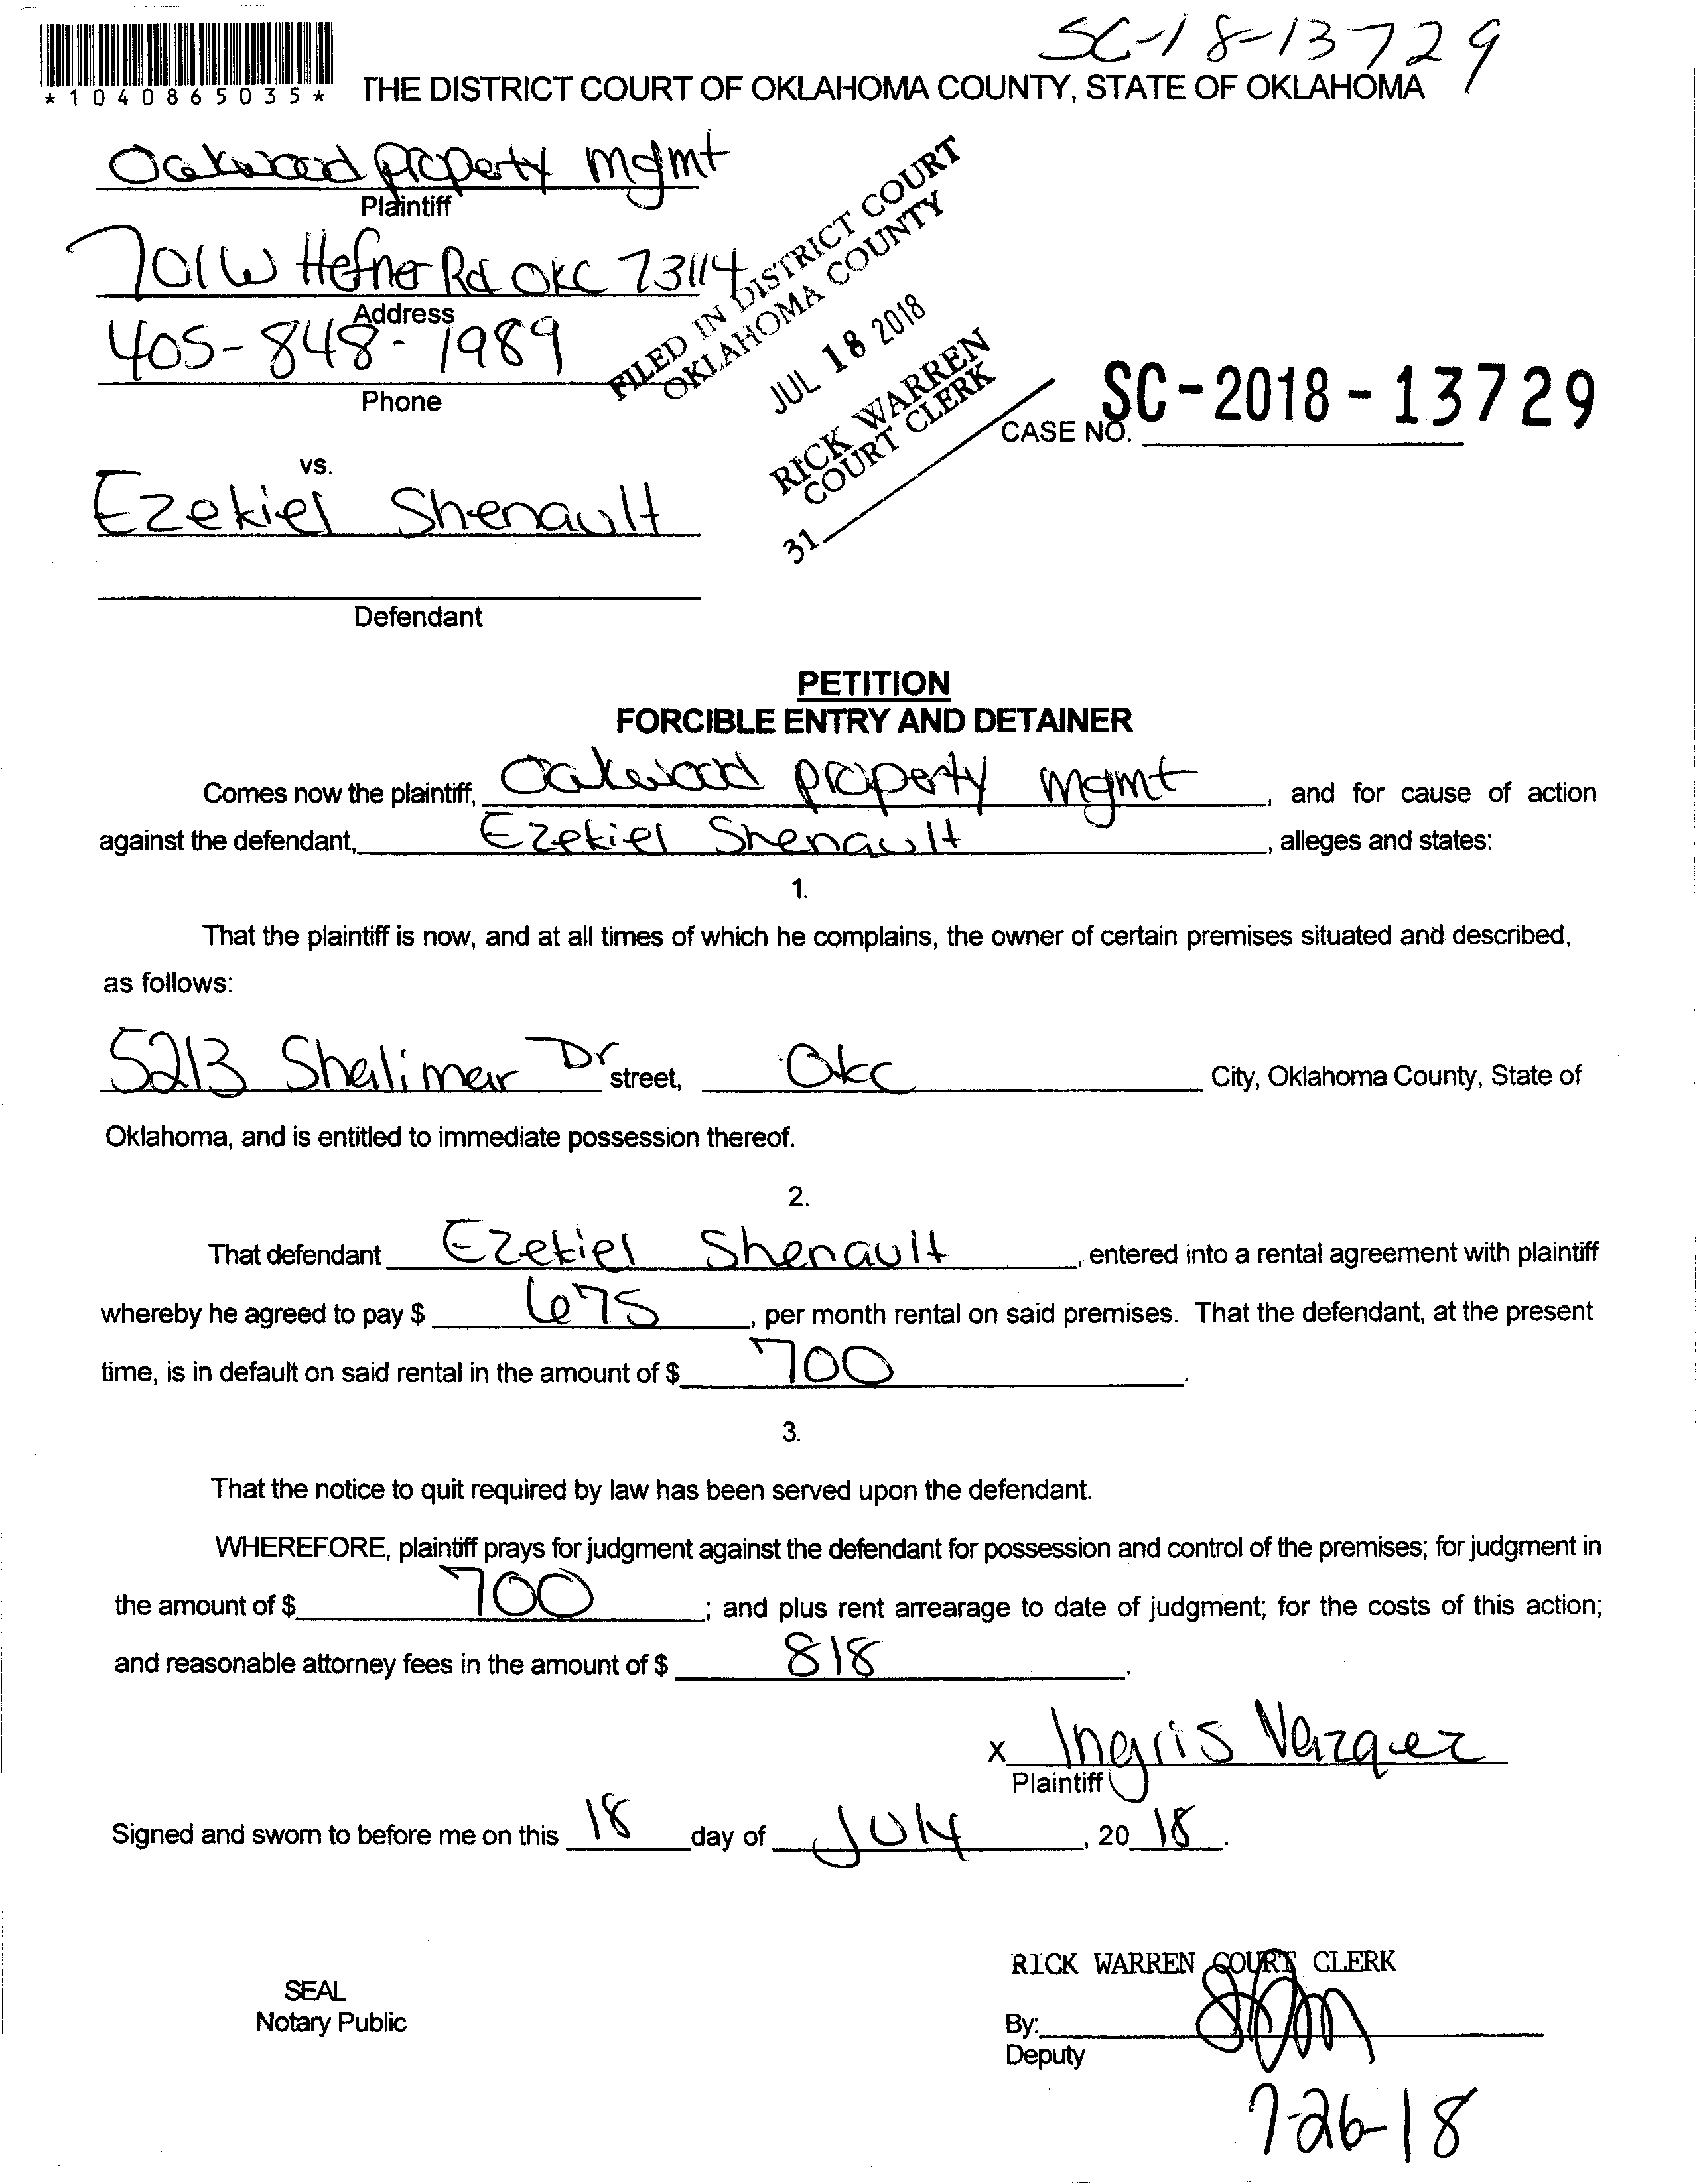 SC-18-13729
*1040865035*
THE DISTRICT COURT OF OKLAHOMA COUNTY, STATE OF OKLAHOMA
Oakwood property mgmt
Plaintiff
701 W Hefner Rd OKC 73114
Address
405-848-1989
Phone
FILED IN DISTRICT COURT
OKLAHOMA COUNTY
JUL 18 2018
RICK WARREN
COURT CLERK
31
CASE NO. SC-2018-13729
vs.
Ezekiel Shenault
Defendant
PETITION
FORCIBLE ENTRY AND DETAINER
Comes now the plaintiff, Oakwood property mgmt, and for cause of action
against the defendant, Ezekiel Shenault, alleges and states:
1.
That the plaintiff is now, and at all times of which he complains, the owner of certain premises situated and described,
as follows:
5213 Shalimar Dr street, Okc City, Oklahoma County, State of
Oklahoma, and is entitled to immediate possession thereof.
2.
That defendant Ezekiel Shenault, entered into a rental agreement with plaintiff
whereby he agreed to pay $ 675, per month rental on said premises. That the defendant, at the present
time, is in default on said rental in the amount of $ 700.
3.
That the notice to quit required by law has been served upon the defendant.
WHEREFORE, plaintiff prays for judgment against the defendant for possession and control of the premises; for judgment in
the amount of $ 700; and plus rent arrearage to date of judgment; for the costs of this action;
and reasonable attorney fees in the amount of $ 818.
x Ingris Vazquez
Plaintiff
Signed and sworn to before me on this 18 day of July, 20 18.
RICK WARREN COURT CLERK
SEAL
Notary Public
By:
Deputy
7-26-18